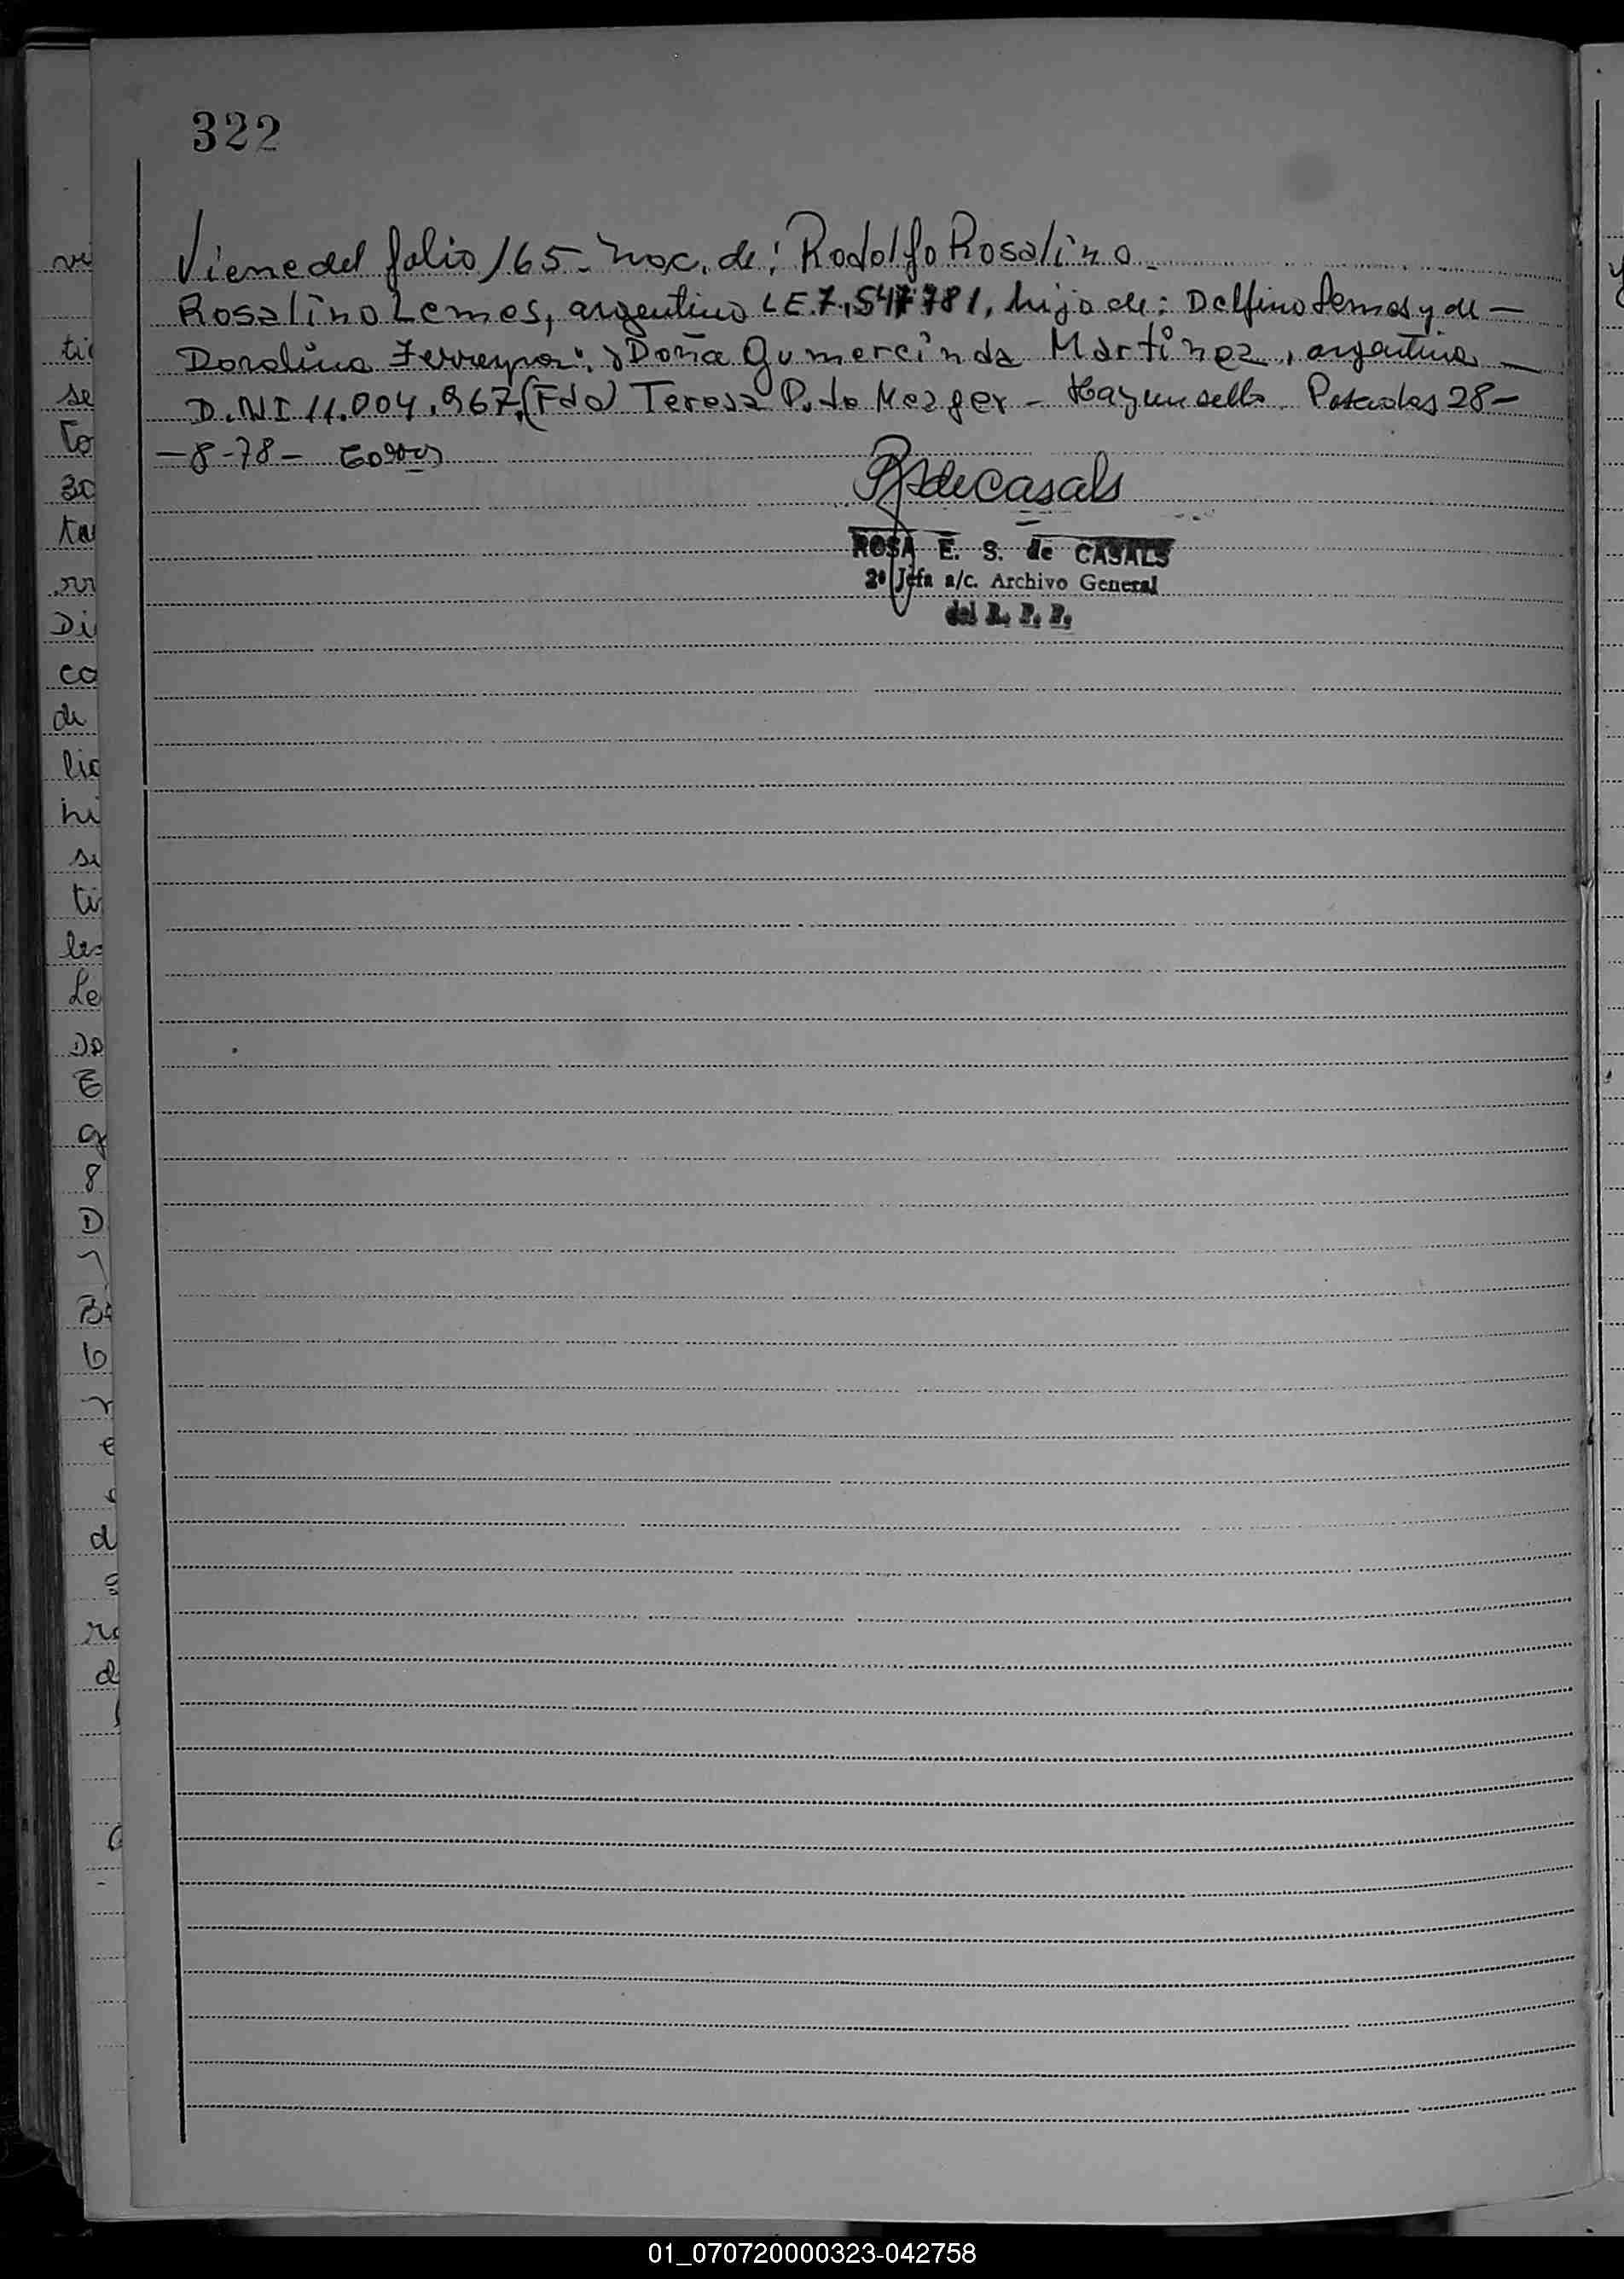 322
Viene del folio 165 - Noc. de: Rodolfo Rosalino -
Rosalino Lemes, argentino LE. 7.547781, hijo de: Delfino Lemes y de -
Doralina Ferreyra: y Doña Gumercinda Martinez, argentina -
D.N.I 11.004.967, (Fdo) Teresa P. de Mezger - Hay un sello. Posadas 28 -
- 8 - 78 -
de Casals
ROSA E. S. de CASALS
2º Jefa a/c. Archivo General
del R. P. P.
vi
tic
se
To
30
ta
Di
co
de
lic
hi
se
ti
les
Le
Do
E
q
8
D
B
b
r
e
d
ro
d
01_070720000323-042758